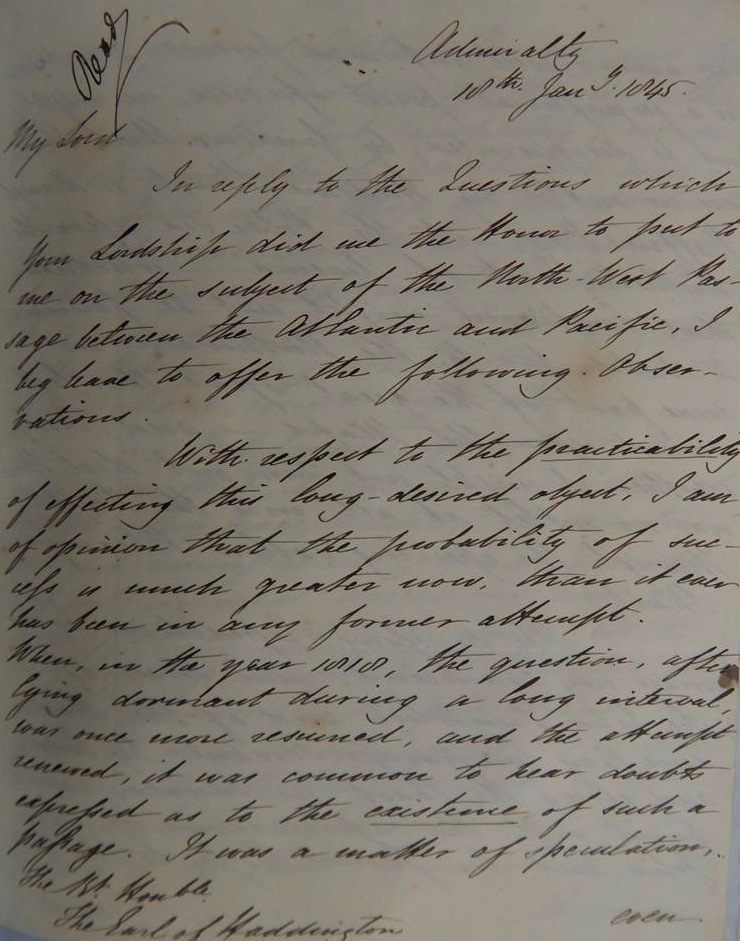 Read
Admiralty
18th. Jany. 1845.
My Lord
In reply to the Questions which
Your Lordship did me the Honor to put to
me on the subject of the North-West Pas-
sage between the Atlantic and Pacific, I
beg leave to offer the following Obser-
vations.
With respect to the practicability
of effecting this long-desired object, I am
of opinion that the probability of suc-
cess is much greater now, than it ever
has been in any former attempt.
When, in the year 1818, the question, after
lying dormant during a long interval,
was once more resumed, and the attempt
renewed, it was common to hear doubts
expressed as to the existence of such a
passage. It was a matter of speculation,
The Rt. Honble.
The Earl of Haddington
even